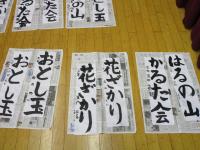 はるの山
かるた会
花ざかり
花ざかり
おとし玉
おとし玉
の山
た会